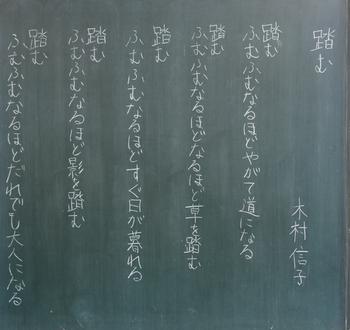 踏む
木村信子
踏む
ふむふむなるほどやがて道になる
踏む
ふむふむなるほどなるほど草を踏む
踏む
ふむふむなるほどすぐ日が暮れる
踏む
ふむふむなるほど影を踏む
踏む
ふむふむなるほどだれでも大人になる